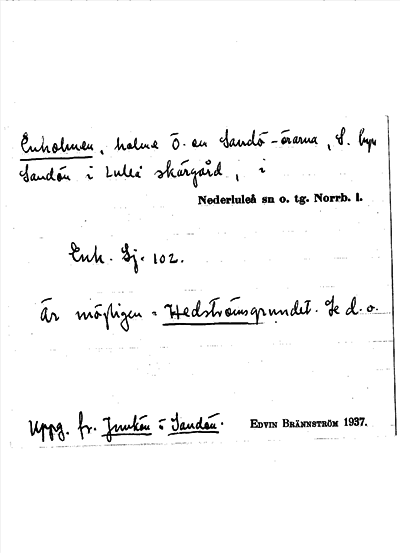 Enholmen, holme Ö. om Sandö-örarna, S. byn
Sandön i Luleå skärgård, i
Nederluleå sn o. tg. Norrb. l.
Enk. Sj. 102.
Är möjligen = Hedströmsgrundet. Se d. o.
Uppg. fr. Junkön o Sandön.
EDVIN BRÄNNSTRÖM 1937.